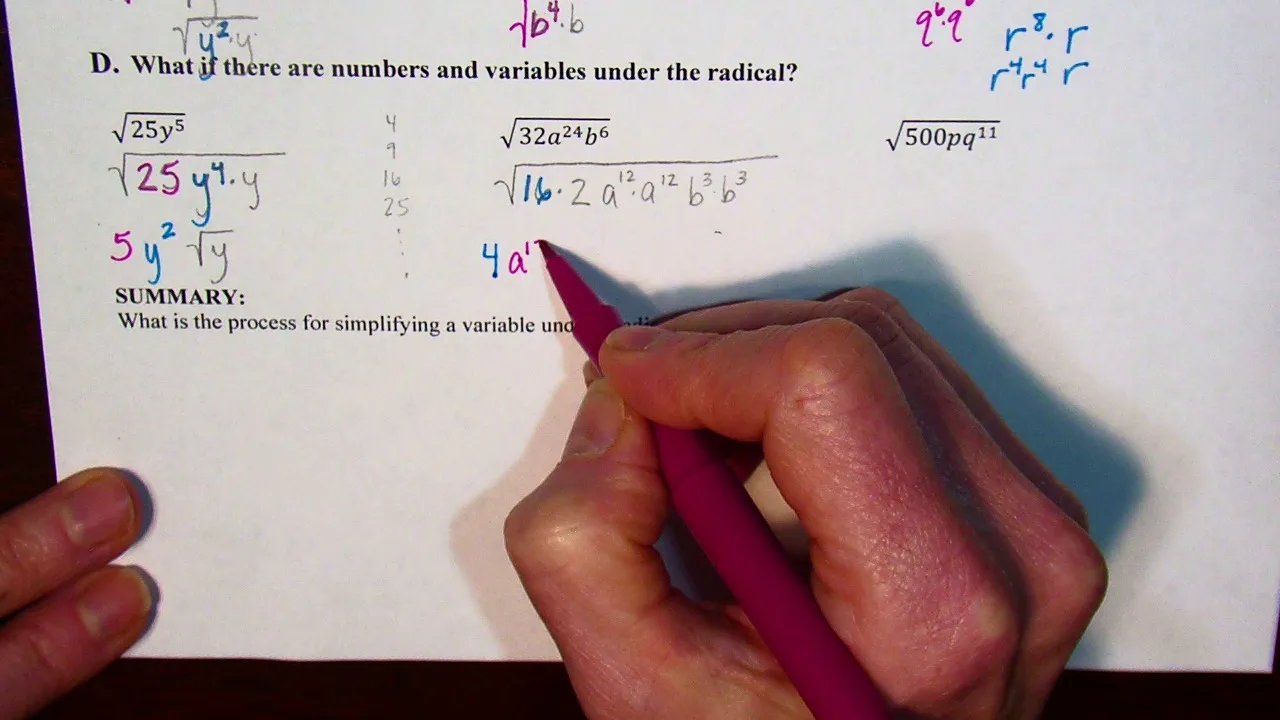 √y²·y √b⁴·b q⁶·q⁶ r⁸·r
r⁴r⁴ r
D. What if there are numbers and variables under the radical?
√25y⁵ 4 √32a²⁴b⁶ √500pq¹¹
9
√25 y⁴·y 16 √16·2 a¹²·a¹² b³·b³
25
5 y² √y 4 a¹
SUMMARY:
What is the process for simplifying a variable